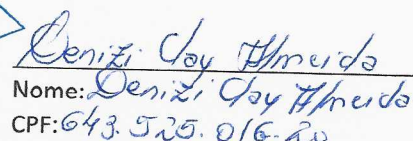 Denizi Clay Almeida
Nome: Denizi Clay Almeida
CPF: 643.525.016-20